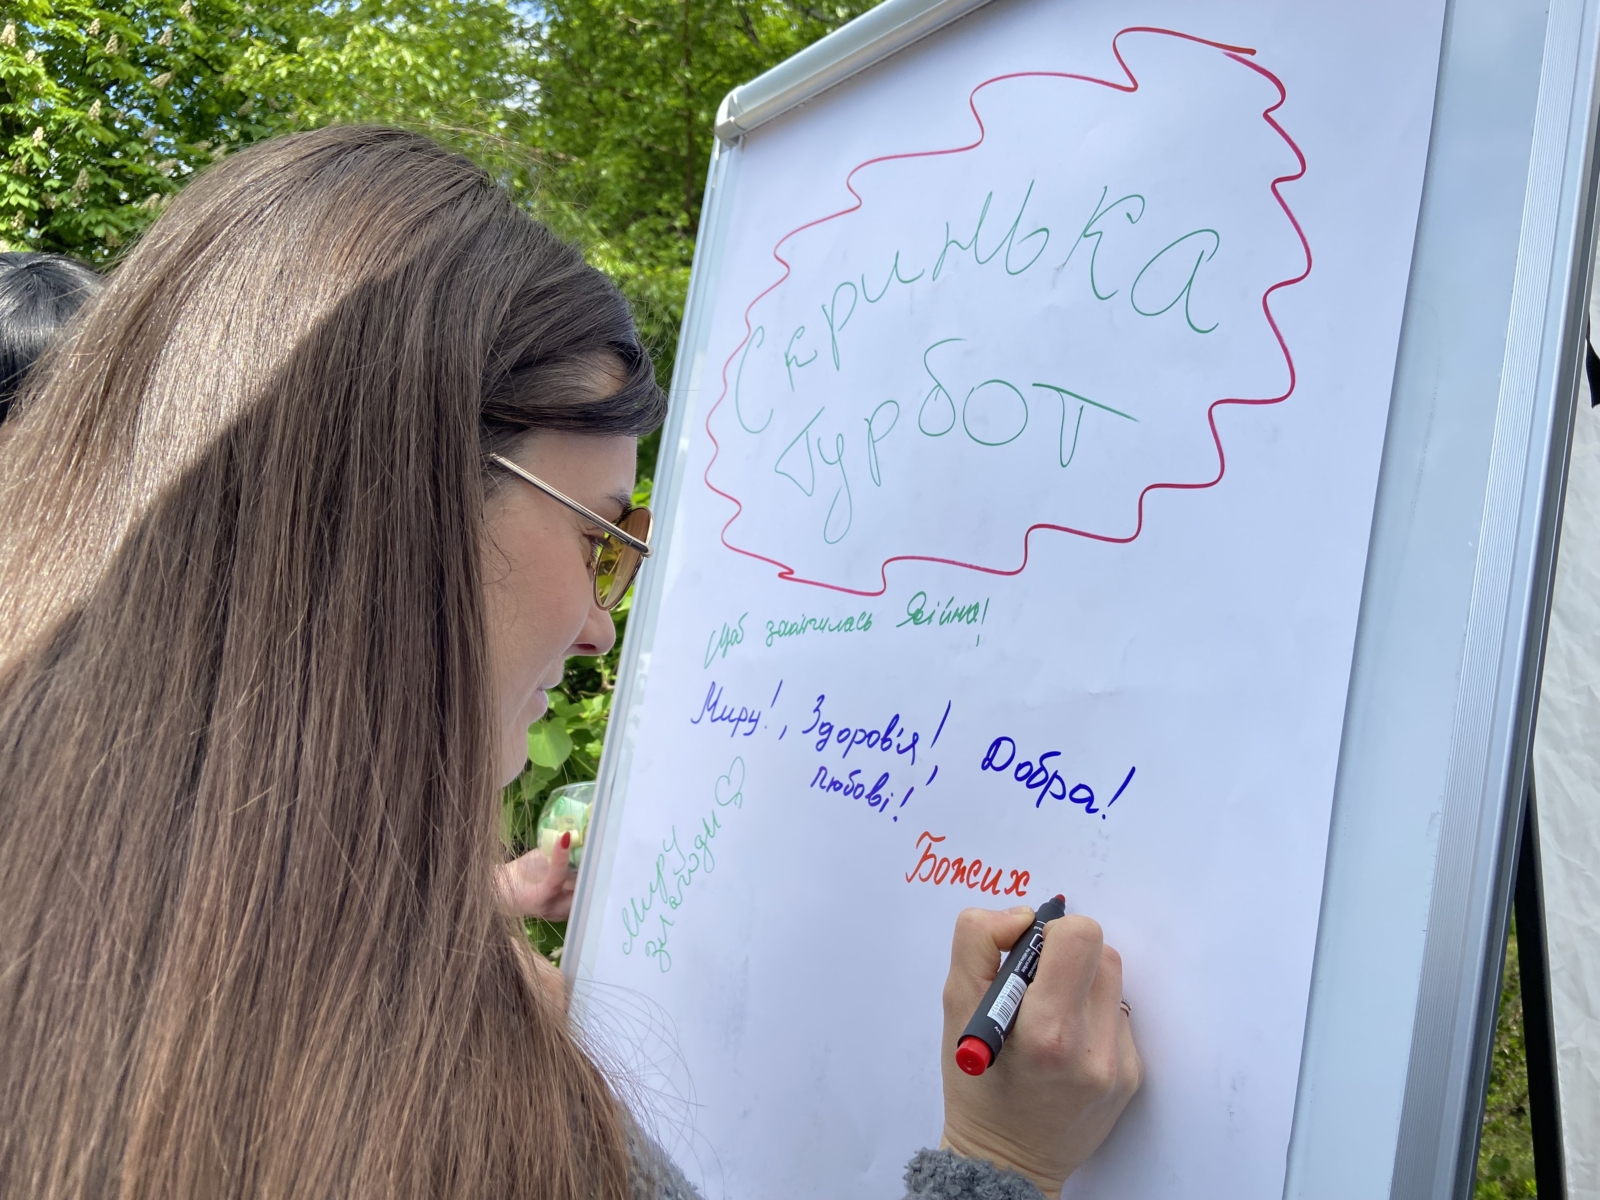 Скринька
Турбот
Щоб закінчилась Війна!
Миру!, Здоров'я!, Добра!
Любові!
Миру
злагоди
Божих